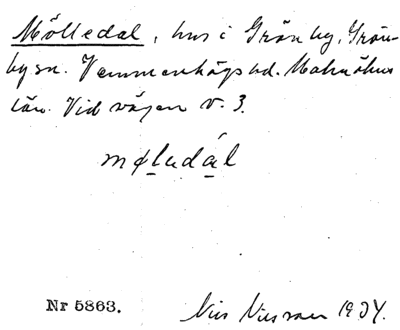 Mölledal, hus i Grönby, Grön-
by sn. Vemmenhögs hd. Malmöhus
län. Vid vägen v. 3.
mølədál
Nr 5863.
Nils Nilsson 1934.